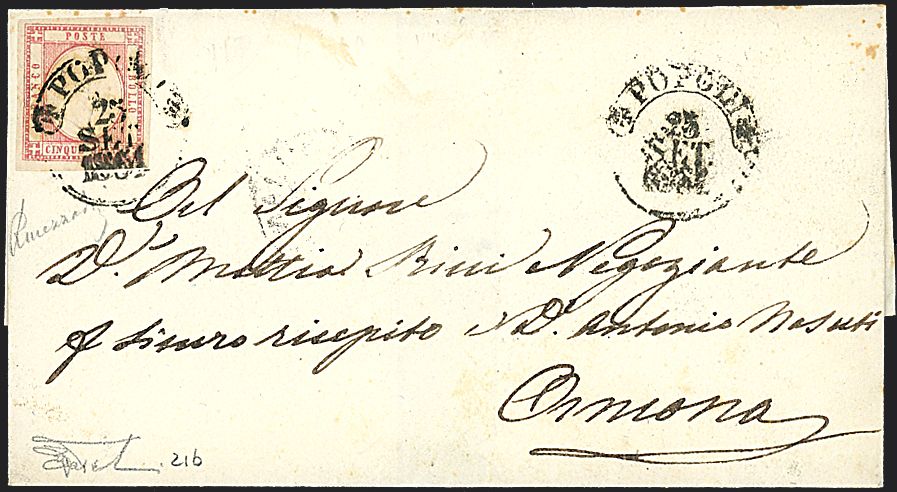 POSTE
FRANCO BOLLO
CINQUE
POPOLI
25
SET
1861
POPOLI
25
SET
1861
Al Signore
D. Mattia Ricci Negoziante
sicuro ricapito D. Antonio Nasuti
Ormona
21b